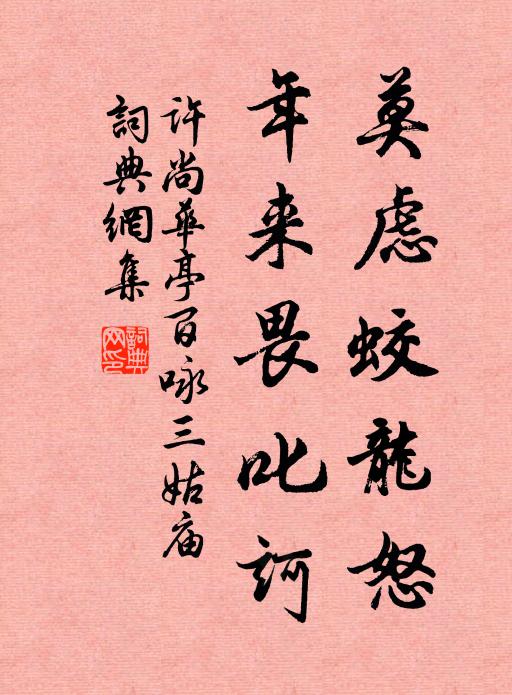 莫虑蛟龍怒
年来畏叱訶
许尚華亭百咏三姑庙
詞典網集
詞典網印